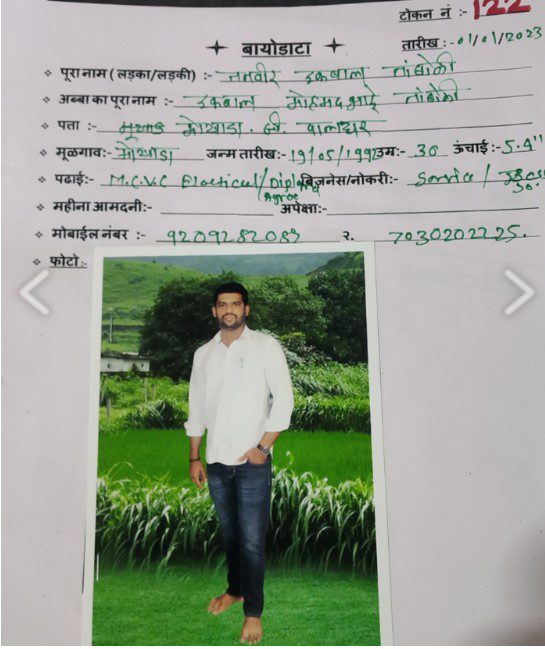 टोकन नं :- 122
बायोडाटा तारीख :- 01/01/2023
पूरा नाम ( लड़का/लड़की) :- तनवीर इकबाल तांबोळी
अब्बा का पूरा नाम :- इकबाल मोहमदभाई तांबोळी
पत्ता :- मोखाडा. जी. पालघर
मूळगाव:- मोखाडा जन्म तारीख:- 19/05/1992 उम्र:- 30 ऊंचाई:- 5.4"
पढाई :- M.C.V.C Electicel/Diploma Agree बिजनेस/नोकरी:- Service /
महीना आमदनी:- अपेक्षा:-
मोबाईल नंबर :- 9209282083 २. 7030202225.
फोटो :-